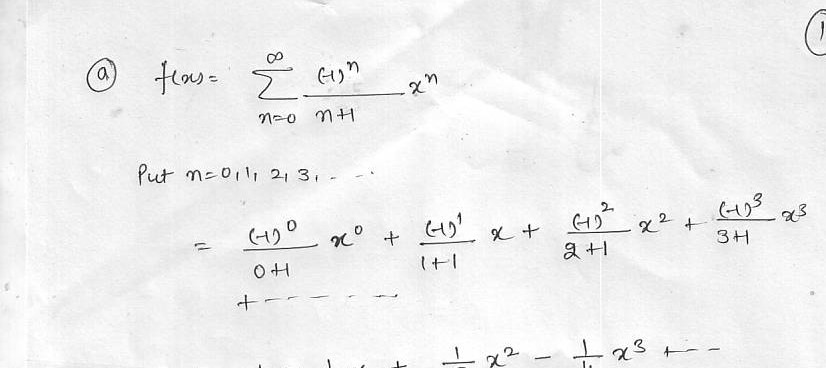 (1
(a) f(x) = ∞∑n=0 (-1)^n/(n+1) x^n
Put n=0, 1, 2, 3, - - -.
= (-1)^0/(0+1) x^0 + (-1)^1/(1+1) x + (-1)^2/(2+1) x^2 + (-1)^3/(3+1) x^3
+ - - - - - - -
x^2 - x^3 + - -